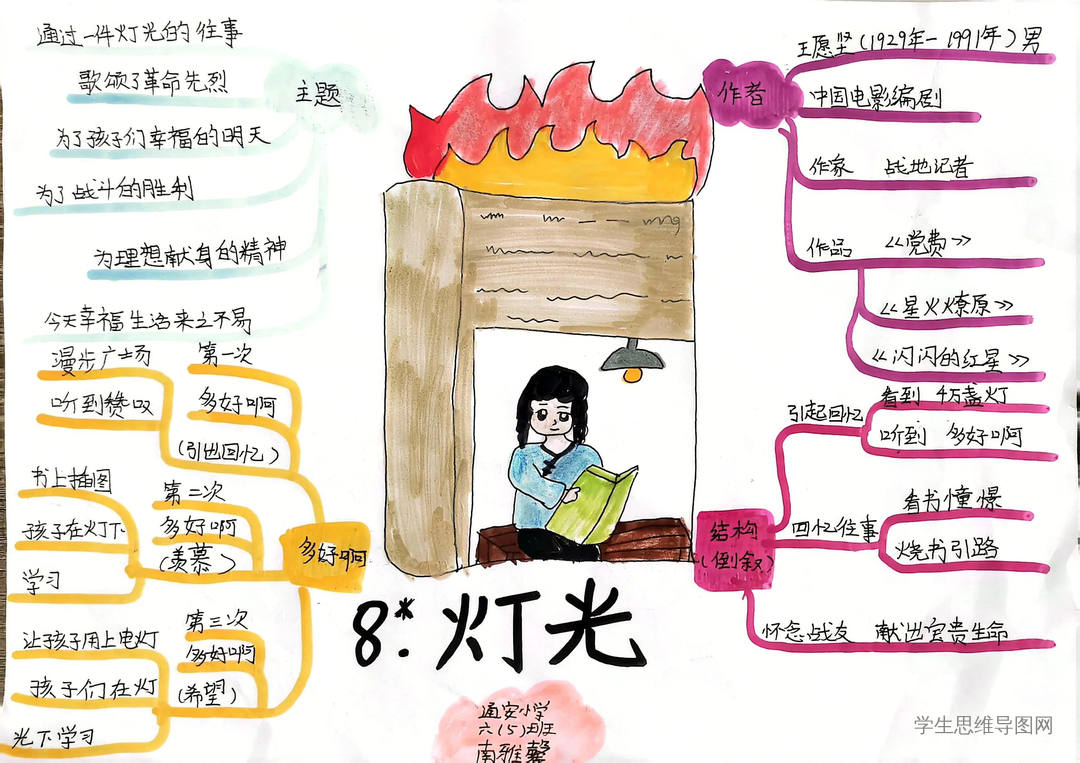 主题
通过一件灯光的往事
歌颂了革命先烈
为了孩子们幸福的明天
为了战斗的胜利
为理想献身的精神
今天幸福生活来之不易
作者
王愿坚(1929年-1991年)男
中国电影编剧
作家 战地记者
作品 《党费》
《星火燎原》
《闪闪的红星》
多好啊
第一次
多好啊
(引出回忆)
漫步广场
听到赞叹
第二次
多好啊
(羡慕)
书上插图
孩子在灯下
学习
第三次
多好啊
(希望)
让孩子用上电灯
孩子们在灯
光下学习
结构
(倒叙)
引起回忆
看到 4万盏灯
听到 多好啊
回忆往事
看书憧憬
烧书引路
怀念战友 献出宝贵生命
8*.灯光
通安小学
六(5)班
南雅馨
学生思维导图网